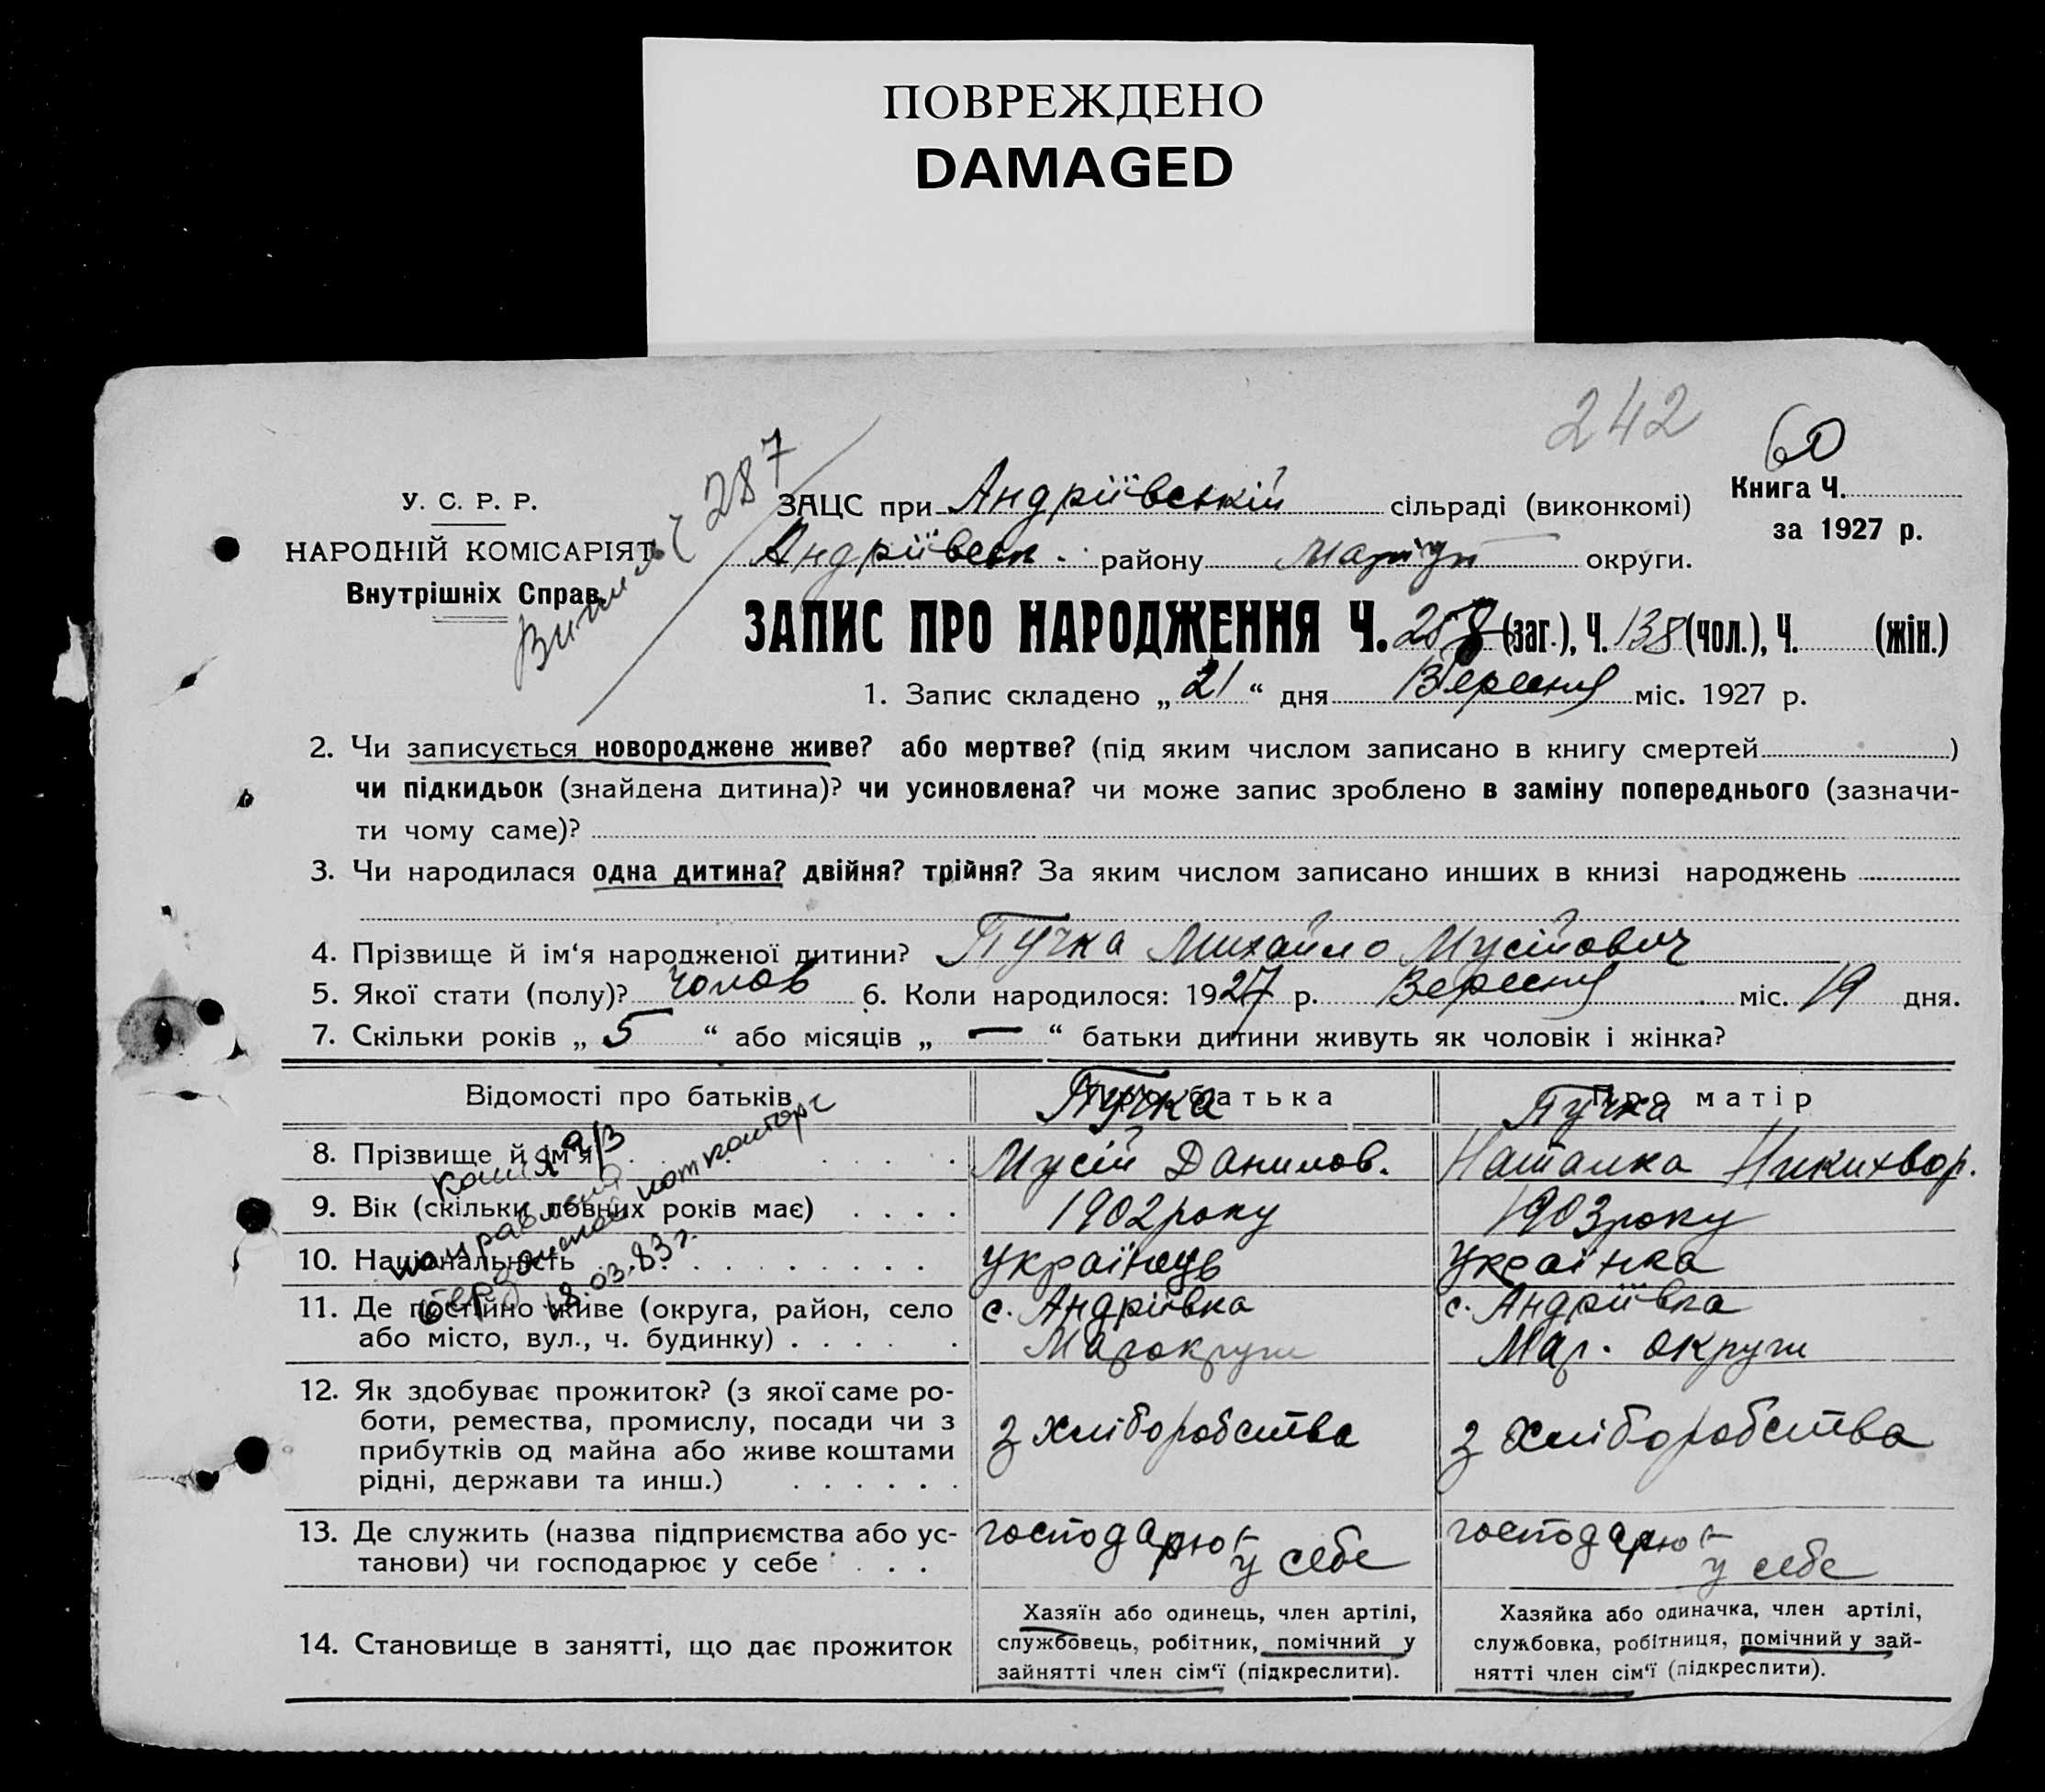 ПОВРЕЖДЕНО
DAMAGED
242
60
У. С. Р. Р.
НАРОДНІЙ КОМІСАРІЯТ
Внутрішніх Справ.
287
ЗАЦС при Андріївській сільраді (виконкомі)
Книга Ч.
за 1927 р.
Андріївськ. району Маріуп округи.
ЗАПИС ПРО НАРОДЖЕННЯ Ч. 258 (заг.), Ч. 138 (чол.), Ч. (жін.)
1. Запис складено „ 21 “ дня Вересня міс. 1927 р.
2. Чи записується новороджене живе? або мертве? (під яким числом записано в книгу смертей )
чи підкидьок (знайдена дитина)? чи усиновлена? чи може запис зроблено в заміну попереднього (зазначи-
ти чому саме)?
3. Чи народилася одна дитина? двійня? трійня? За яким числом записано инших в книзі народжень
4. Прізвище й ім‘я народженої дитини? Пучка Михайло Мусійович
5. Якої стати (полу)? чолов 6. Коли народилося: 1927 р. Вересня міс. 19 дня.
7. Скільки років „ 5 “ або місяців „ — “ батьки дитини живуть як чоловік і жінка?
Відомості про батьків Про батька Про матір
Пучка Пучка
8. Прізвище й ім‘я Мусій Данилов. Наталка Никихвор.
9. Вік (скільки повних років має) 1902 року 1903 року
10. Національність українець українка
11. Де постійно живе (округа, район, село с. Андріївка с. Андріївка
або місто, вул., ч. будинку) Марокруги Мар. округи
18.03.83 г.
12. Як здобуває прожиток? (з якої саме ро-
боти, ремества, промислу, посади чи з з хліборобства з хліборобства
прибутків од майна або живе коштами
рідні, держави та инш.)
13. Де служить (назва підприємства або ус- господарют господарют
танови) чи господарює у себе у себе у себе
14. Становище в занятті, що дає прожиток
Хазяїн або одинець, член артілі,
службовець, робітник, помічний у
зайнятті член сім‘ї (підкреслити).
Хазяйка або одиначка, член артілі,
службовка, робітниця, помічний у зай-
нятті член сім‘ї (підкреслити).